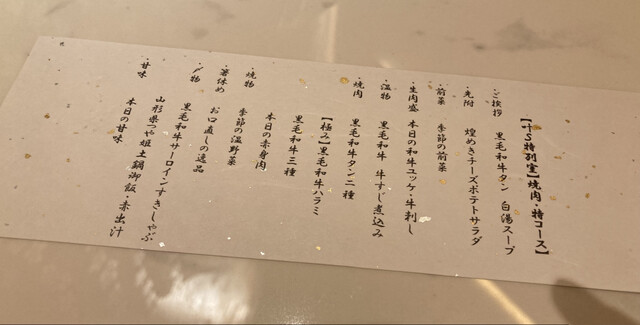 【十S特別室】焼肉・特コース】
・ご挨拶 黒毛和牛タン 白湯スープ
・先附 煌めきチーズポテトサラダ
・前菜 季節の前菜
・生肉盛 本日の和牛ユッケ・牛刺し
・温物 黒毛和牛 牛すじ煮込み
・焼肉 黒毛和牛タン二種
【極み】黒毛和牛ハラミ
黒毛和牛三種
・焼物 本日の赤身肉
季節の温野菜
・箸休め お口直しの逸品
・〆物 黒毛和牛サーロインすきしゃぶ
山形県つや姫土鍋御飯・赤出汁
・甘味 本日の甘味